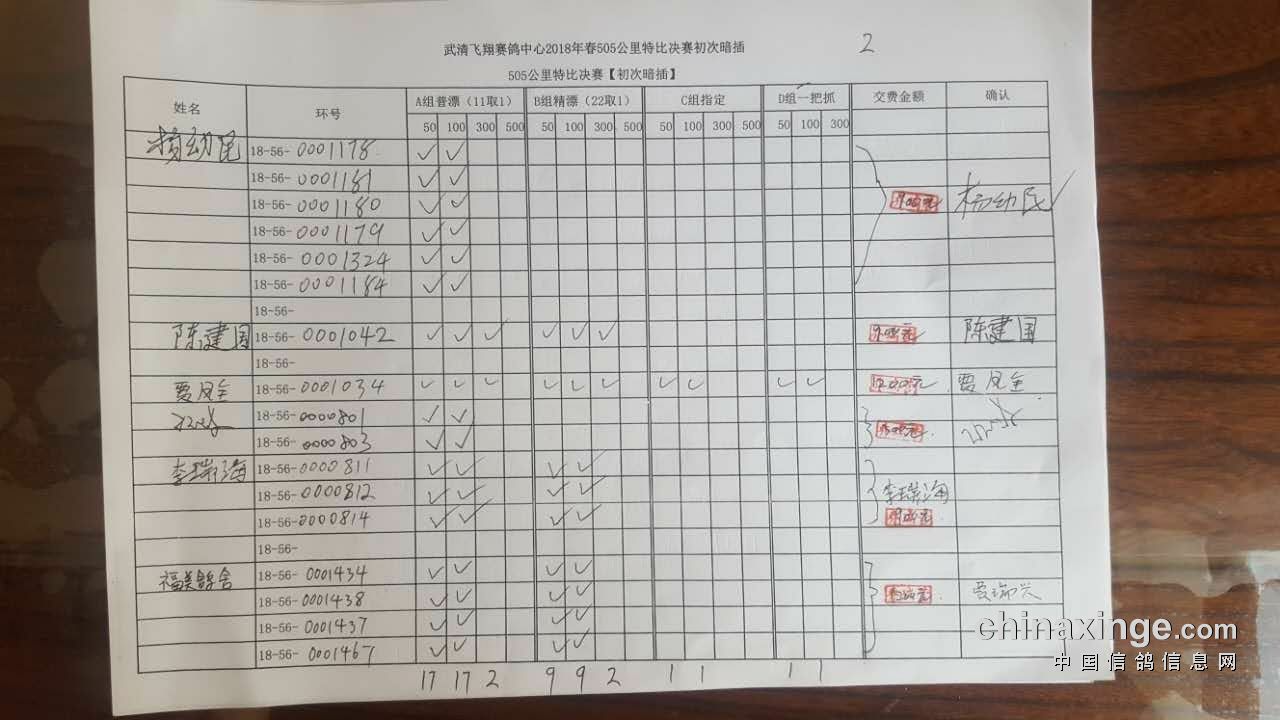 武清飞翔赛鸽中心2018年春505公里特比决赛初次暗插 2
505公里特比决赛【初次暗插】
姓名 环号 A组普漂（11取1） B组精漂（22取1） C组指定 D组一把抓 交费金额 确认
50 100 300 500 50 100 300 500 50 100 300 500 50 100 300
杨幼民 18-56-0001178 ✓ ✓
18-56-0001181 ✓ ✓
18-56-0001180 ✓ ✓ 杨幼民
18-56-0001179 ✓ ✓
18-56-0001324 ✓ ✓
18-56-0001184 ✓ ✓
18-56-
陈建国 18-56-0001042 ✓ ✓ ✓ ✓ ✓ ✓ 陈建国
18-56-
贾凤全 18-56-0001034 ✓ ✓ ✓ ✓ ✓ ✓ ✓ ✓ ✓ ✓ 贾凤全
18-56-0000801 ✓ ✓
18-56-0000803 ✓ ✓
李瑞海 18-56-0000811 ✓ ✓ ✓ ✓
18-56-0000812 ✓ ✓ ✓ ✓ 李瑞海
18-56-0000814 ✓ ✓ ✓ ✓
18-56-
福美鸽舍 18-56-0001434 ✓ ✓ ✓ ✓
18-56-0001438 ✓ ✓ ✓ ✓
18-56-0001437 ✓ ✓ ✓ ✓
18-56-0001467 ✓ ✓ ✓ ✓
17 17 2 9 9 2 1 1 1 1
chinaxinge.com
中国信鸽信息网